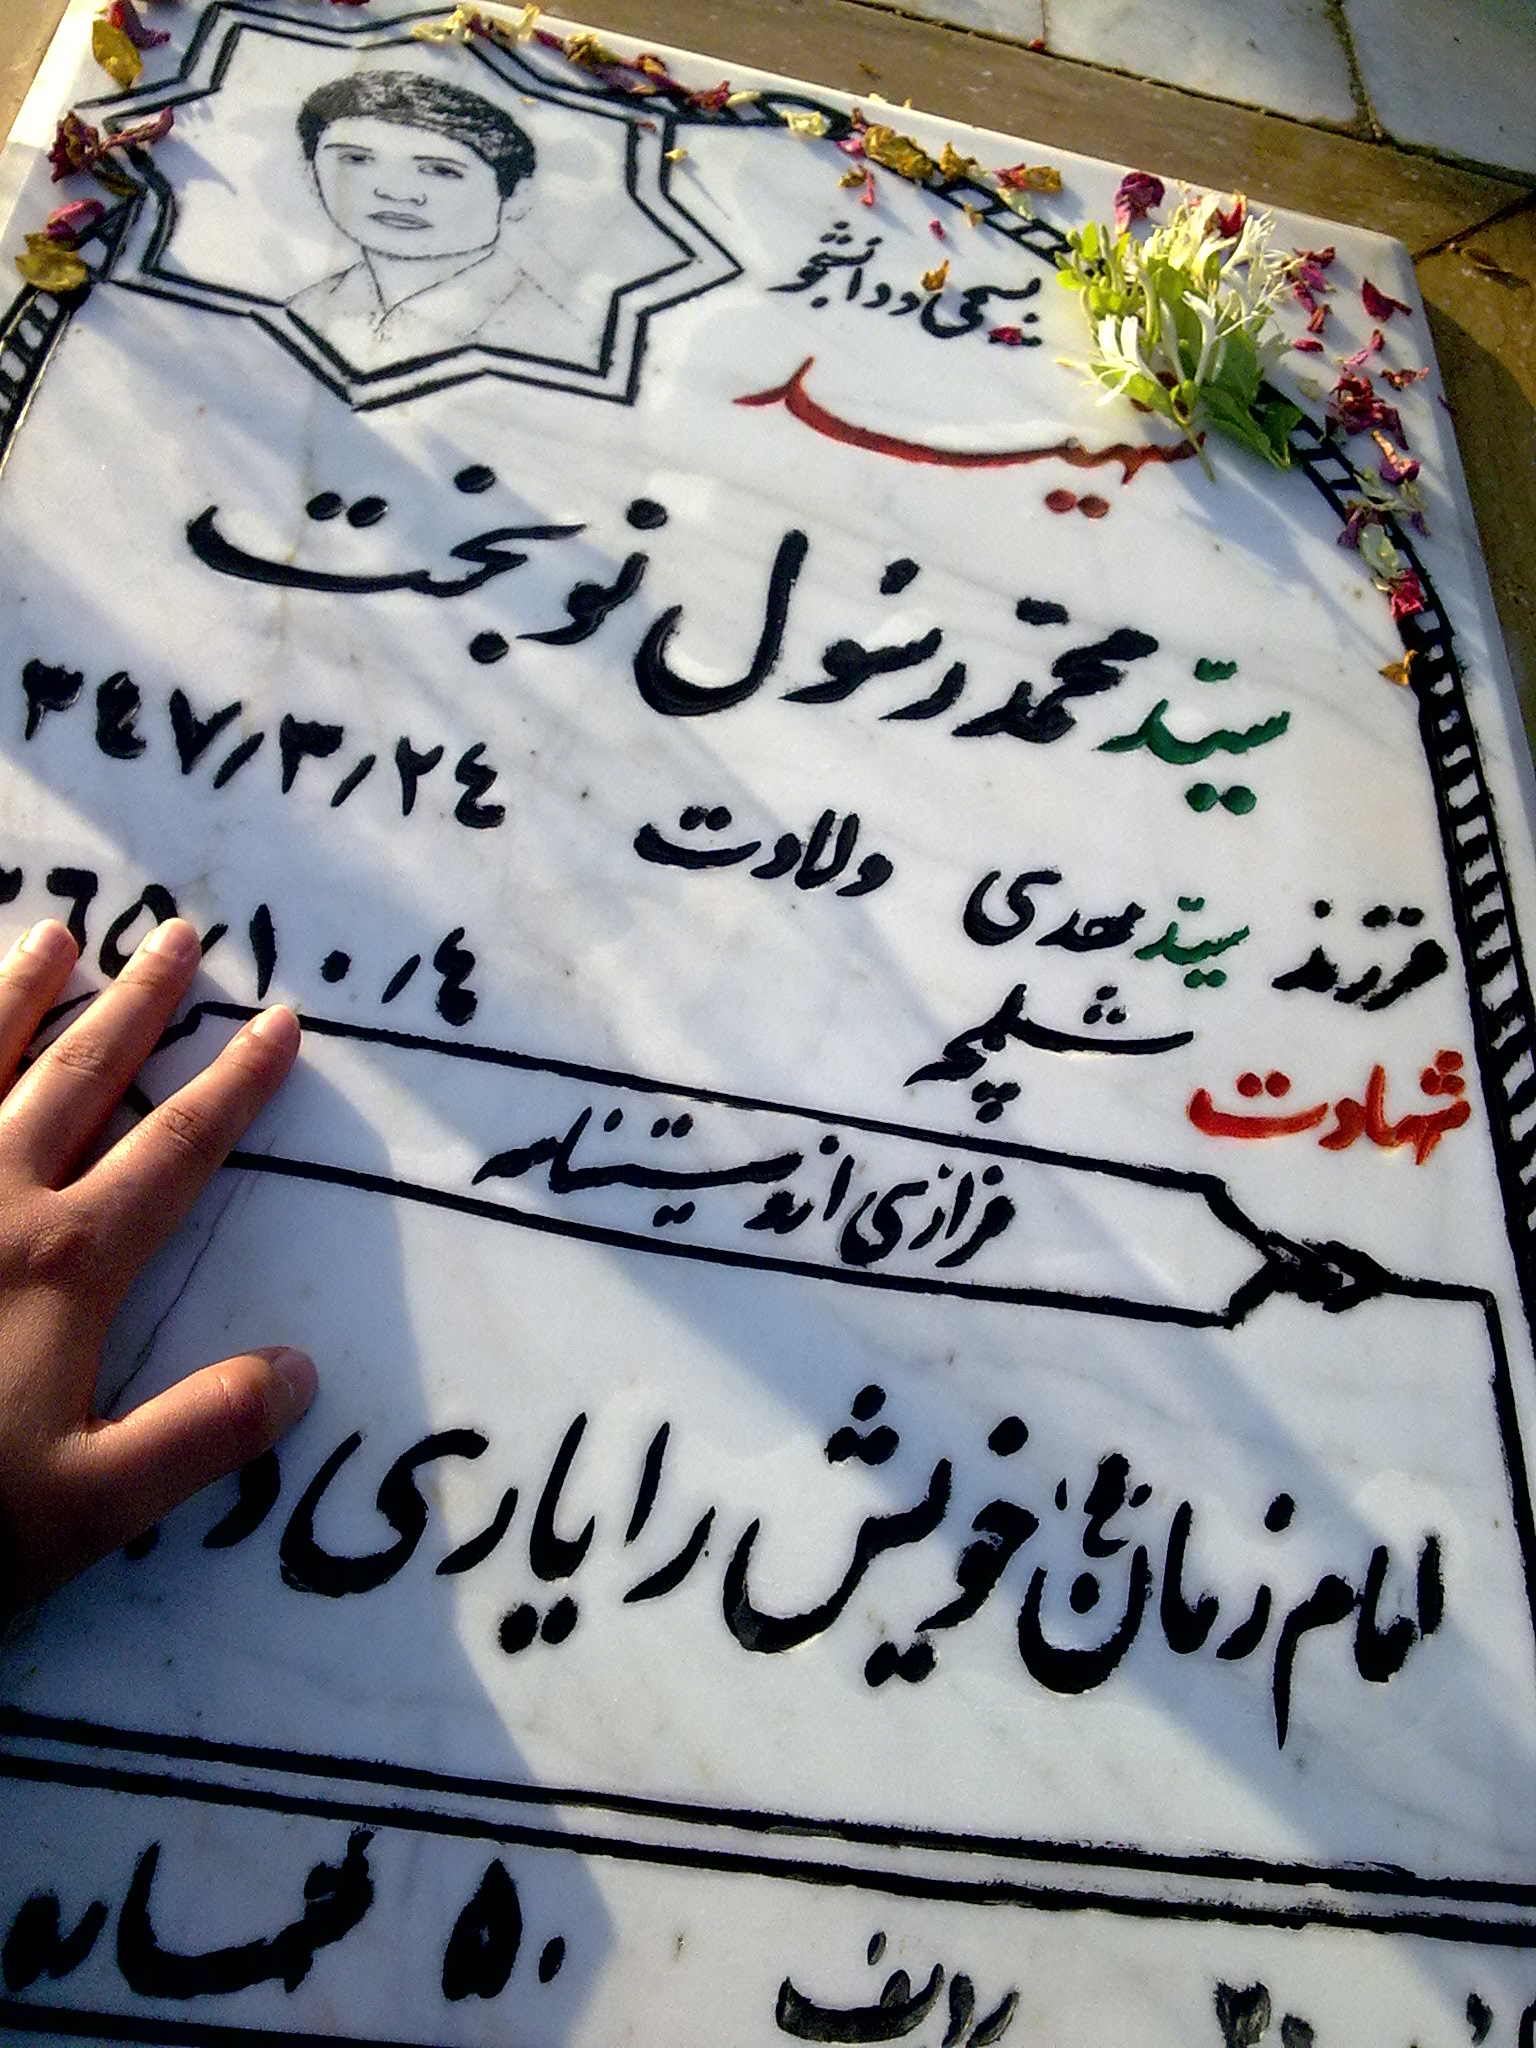 بسیجی و دانشجو
شهید
سیّد محمّد رسول نوبخت
فرزند سیّد مهدی ولادت ۳٤۷/۳/۲٤
شهادت شلمچه ۳٦۵/۱۰/٤
فرازی از وصیتنامه
امام زمان (عج) خویش را یاری
۲۰ ردیف ۵۰ شماره